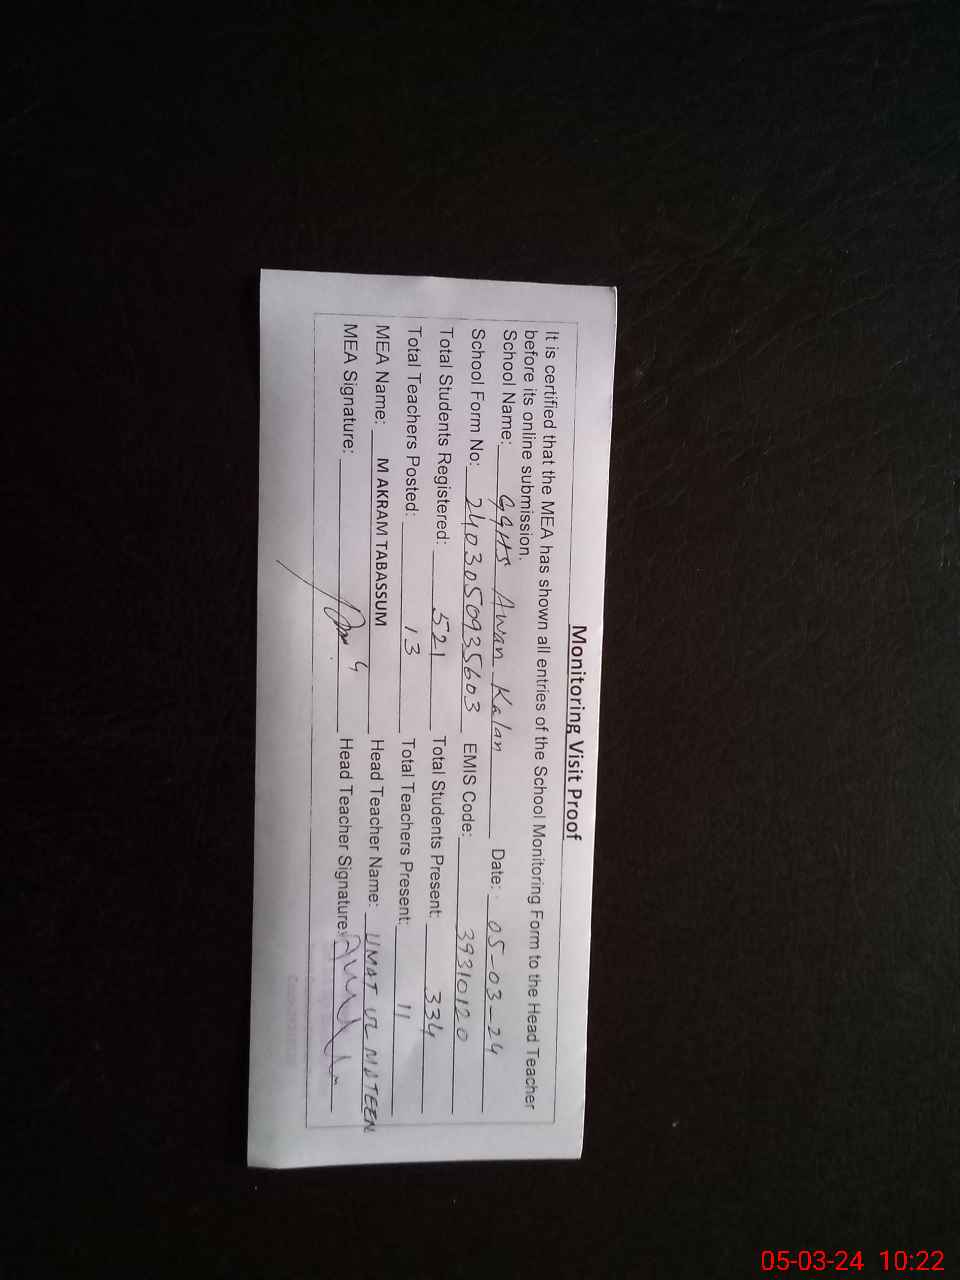 Monitoring Visit Proof
It is certified that the MEA has shown all entries of the School Monitoring Form to the Head Teacher
before its online submission.
School Name: GGHS Awan Kalan Date: 05-03-24
School Form No: 2403050935603 EMIS Code: 39310120
Total Students Registered: 521 Total Students Present: 334
Total Teachers Posted: 13 Total Teachers Present: 11
MEA Name: M AKRAM TABASSUM Head Teacher Name: UMAT UL MATEEN
MEA Signature: Head Teacher Signature:
05-03-24 10:22